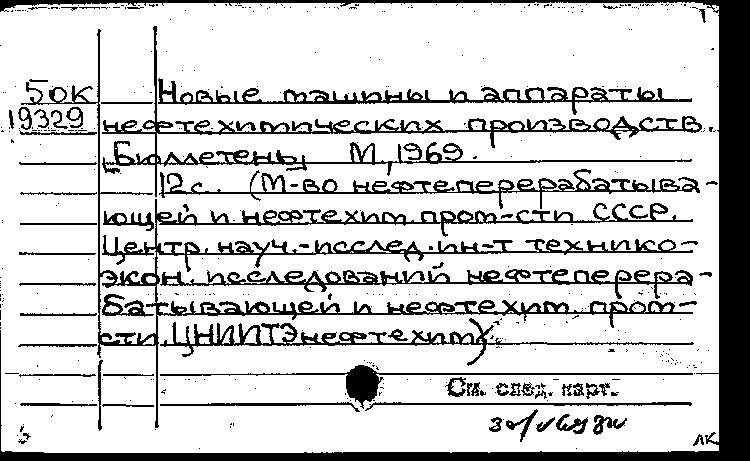 БОК Новые машины и аппараты
19329 нефтехимических производств.
[Бюллетень] М., 1969.
12с. (М-во нефтеперерабатыва-
ющей и нефтехим. пром-сти СССР.
Центр. науч.-исслед. ин-т технико-
экон. исследований нефтеперера-
батывающей и нефтехим. пром-
сти. ЦНИИТЭнефтехим).
См. след. карт.
ЛК